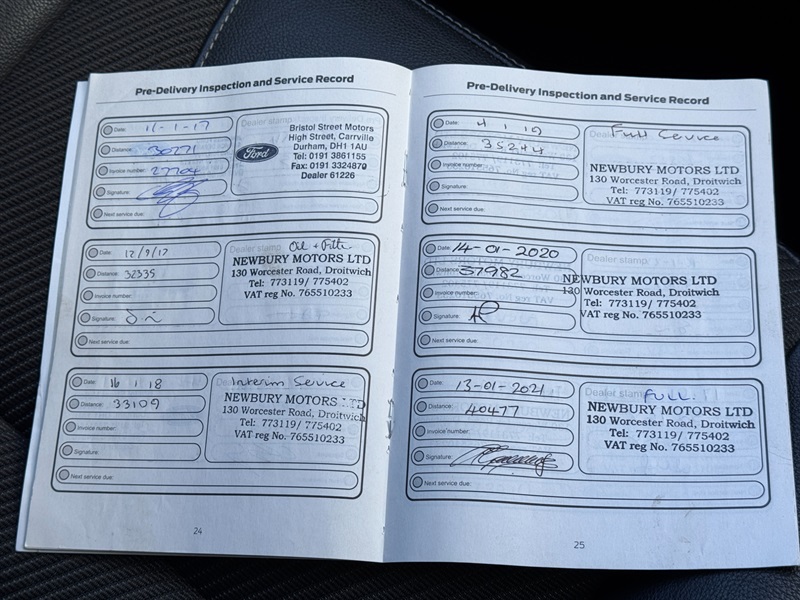 Pre-Delivery Inspection and Service Record
Date: 11-1-17
Distance: 30771
Invoice number: 27704
Signature:
Next service due:
Dealer stamp
Ford
Bristol Street Motors
High Street, Carrville
Durham, DH1 1AU
Tel: 0191 3861155
Fax: 0191 3324879
Dealer 61226
Date: 12/9/17
Distance: 32335
Invoice number:
Signature:
Next service due:
Dealer stamp Oil + Filter
NEWBURY MOTORS LTD
130 Worcester Road, Droitwich
Tel: 773119/ 775402
VAT reg No. 765510233
Date: 16 1 18
Distance: 33109
Invoice number:
Signature:
Next service due:
Interim Service
NEWBURY MOTORS LTD
130 Worcester Road, Droitwich
Tel: 773119/ 775402
VAT reg No. 765510233
24
Pre-Delivery Inspection and Service Record
Date: 4 1 19
Distance: 35244
Invoice number:
Signature:
Next service due:
Full Service
NEWBURY MOTORS LTD
130 Worcester Road, Droitwich
Tel: 773119/ 775402
VAT reg No. 765510233
Date: 14-01-2020
Distance: 37982
Invoice number:
Signature:
Next service due:
Dealer stamp
NEWBURY MOTORS LTD
130 Worcester Road, Droitwich
Tel: 773119/ 775402
VAT reg No. 765510233
Date: 13-01-2021
Distance: 40477
Invoice number:
Signature:
Next service due:
Dealer stamp FULL.
NEWBURY MOTORS LTD
130 Worcester Road, Droitwich
Tel: 773119/ 775402
VAT reg No. 765510233
25